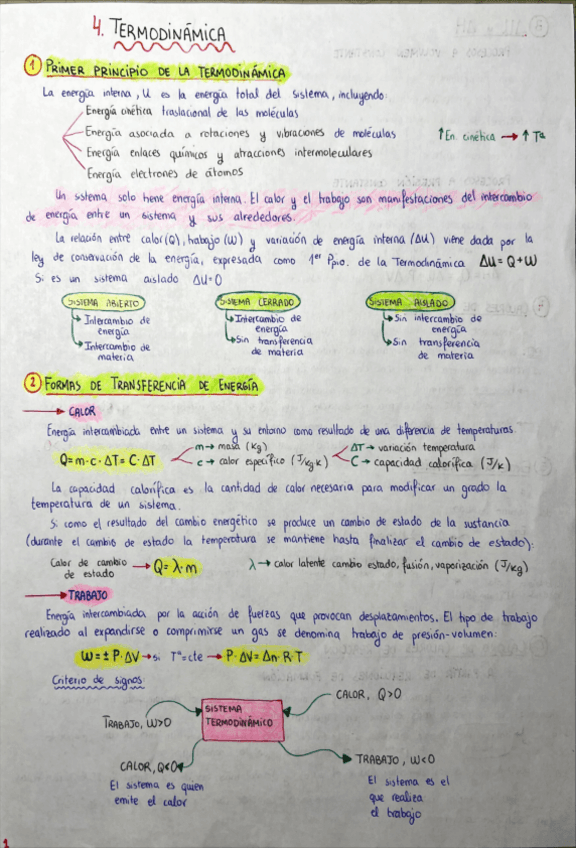 4. TERMODINÁMICA
1 PRIMER PRINCIPIO DE LA TERMODINÁMICA
La energía interna, U es la energía total del sistema, incluyendo:
Energía cinética traslacional de las moléculas
Energía asociada a rotaciones y vibraciones de moléculas
↑En. cinética → ↑Tª
Energía enlaces químicos y atracciones intermoleculares
Energía electrones de átomos
Un sistema solo tiene energía interna. El calor y el trabajo son manifestaciones del intercambio
de energía entre un sistema y sus alrededores.
La relación entre calor(Q), trabajo (W) y variación de energía interna (ΔU) viene dada por la
ley de conservación de la energía, expresada como 1er Ppio. de la Termodinámica ΔU = Q+W
Si es un sistema aislado ΔU=0
SISTEMA ABIERTO
Intercambio de
energía
Intercambio de
materia
SISTEMA CERRADO
Intercambio de
energía
Sin transferencia
de materia
SISTEMA AISLADO
Sin intercambio de
energía
Sin transferencia
de materia
2 FORMAS DE TRANSFERENCIA DE ENERGÍA
→ CALOR
Energía intercambiada entre un sistema y su entorno como resultado de una diferencia de temperaturas.
Q=m·c·ΔT=C·ΔT
m→ masa (kg)
c → calor específico (J/kgK)
ΔT→ variación temperatura
C → capacidad calorífica (J/K)
La capacidad calorífica es la cantidad de calor necesaria para modificar un grado la
temperatura de un sistema.
Si como el resultado del cambio energético se produce un cambio de estado de la sustancia
(durante el cambio de estado la temperatura se mantiene hasta finalizar el cambio de estado):
Calor de cambio
de estado
→ Q=λ·m
λ→ calor latente cambio estado, fusión, vaporización (J/kg)
→ TRABAJO
Energía intercambiada por la acción de fuerzas que provocan desplazamientos. El tipo de trabajo
realizado al expandirse o comprimirse un gas se denomina trabajo de presión-volumen:
W=±P·ΔV→si Tª=cte→ P·ΔV=Δn·R·T
Criterio de signos:
CALOR, Q>0
SISTEMA
TERMODINÁMICO
TRABAJO, W>0
CALOR, Q<0
El sistema es quien
emite el calor
TRABAJO, W<0
El sistema es el
que realiza
el trabajo
1